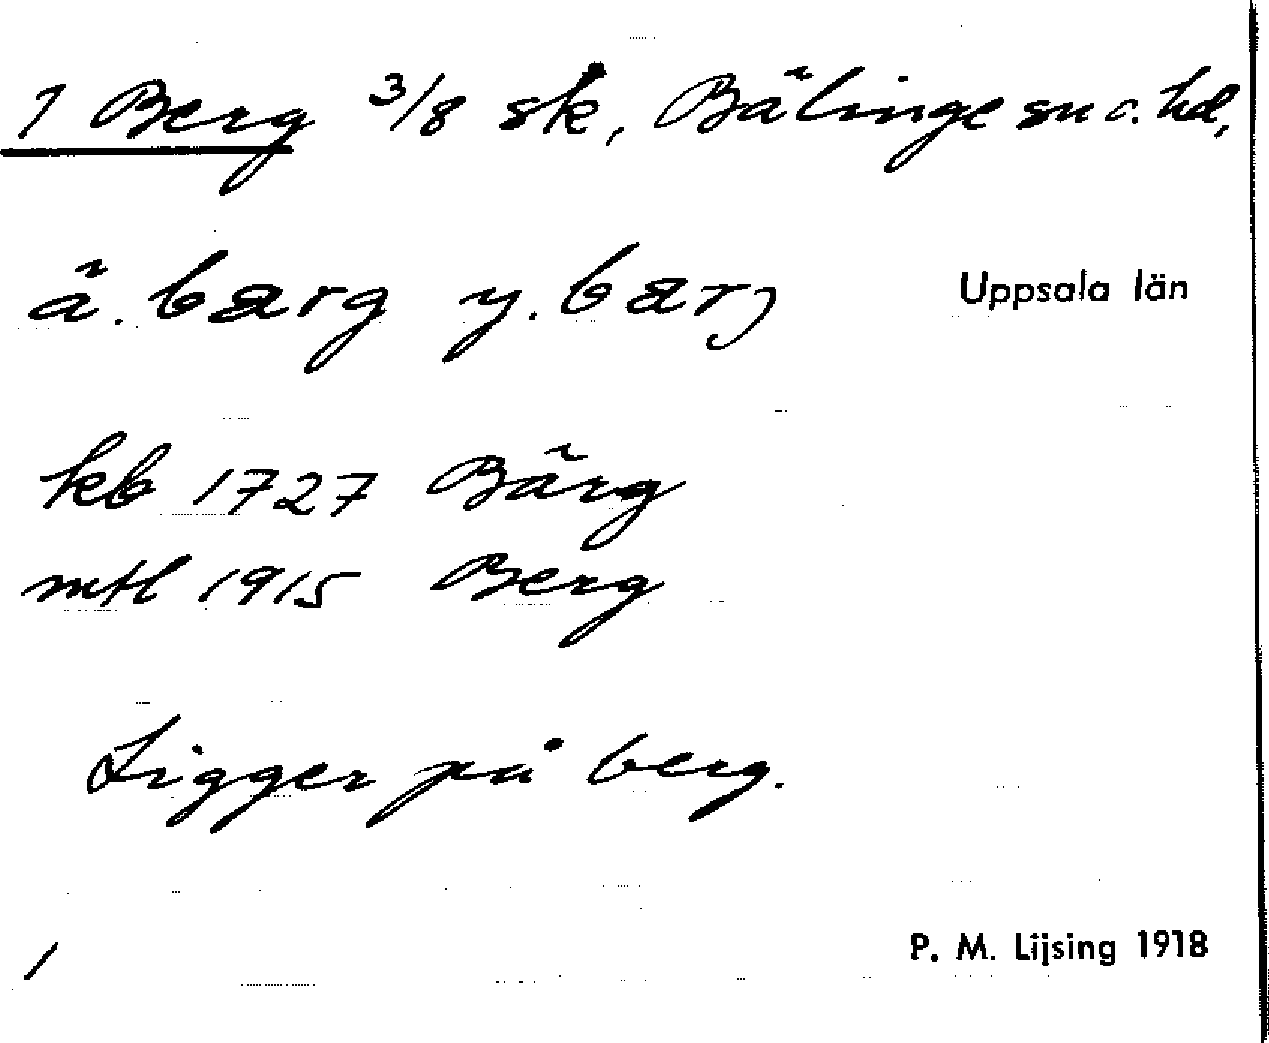 1 Berg 3/8 sk, Bälinge sn o. hd,
ä. bærg y. bærj
Uppsala län
kb 1727 Bärg
mtl 1915 Berg
Ligger på berg.
/
P. M. Lijsing 1918